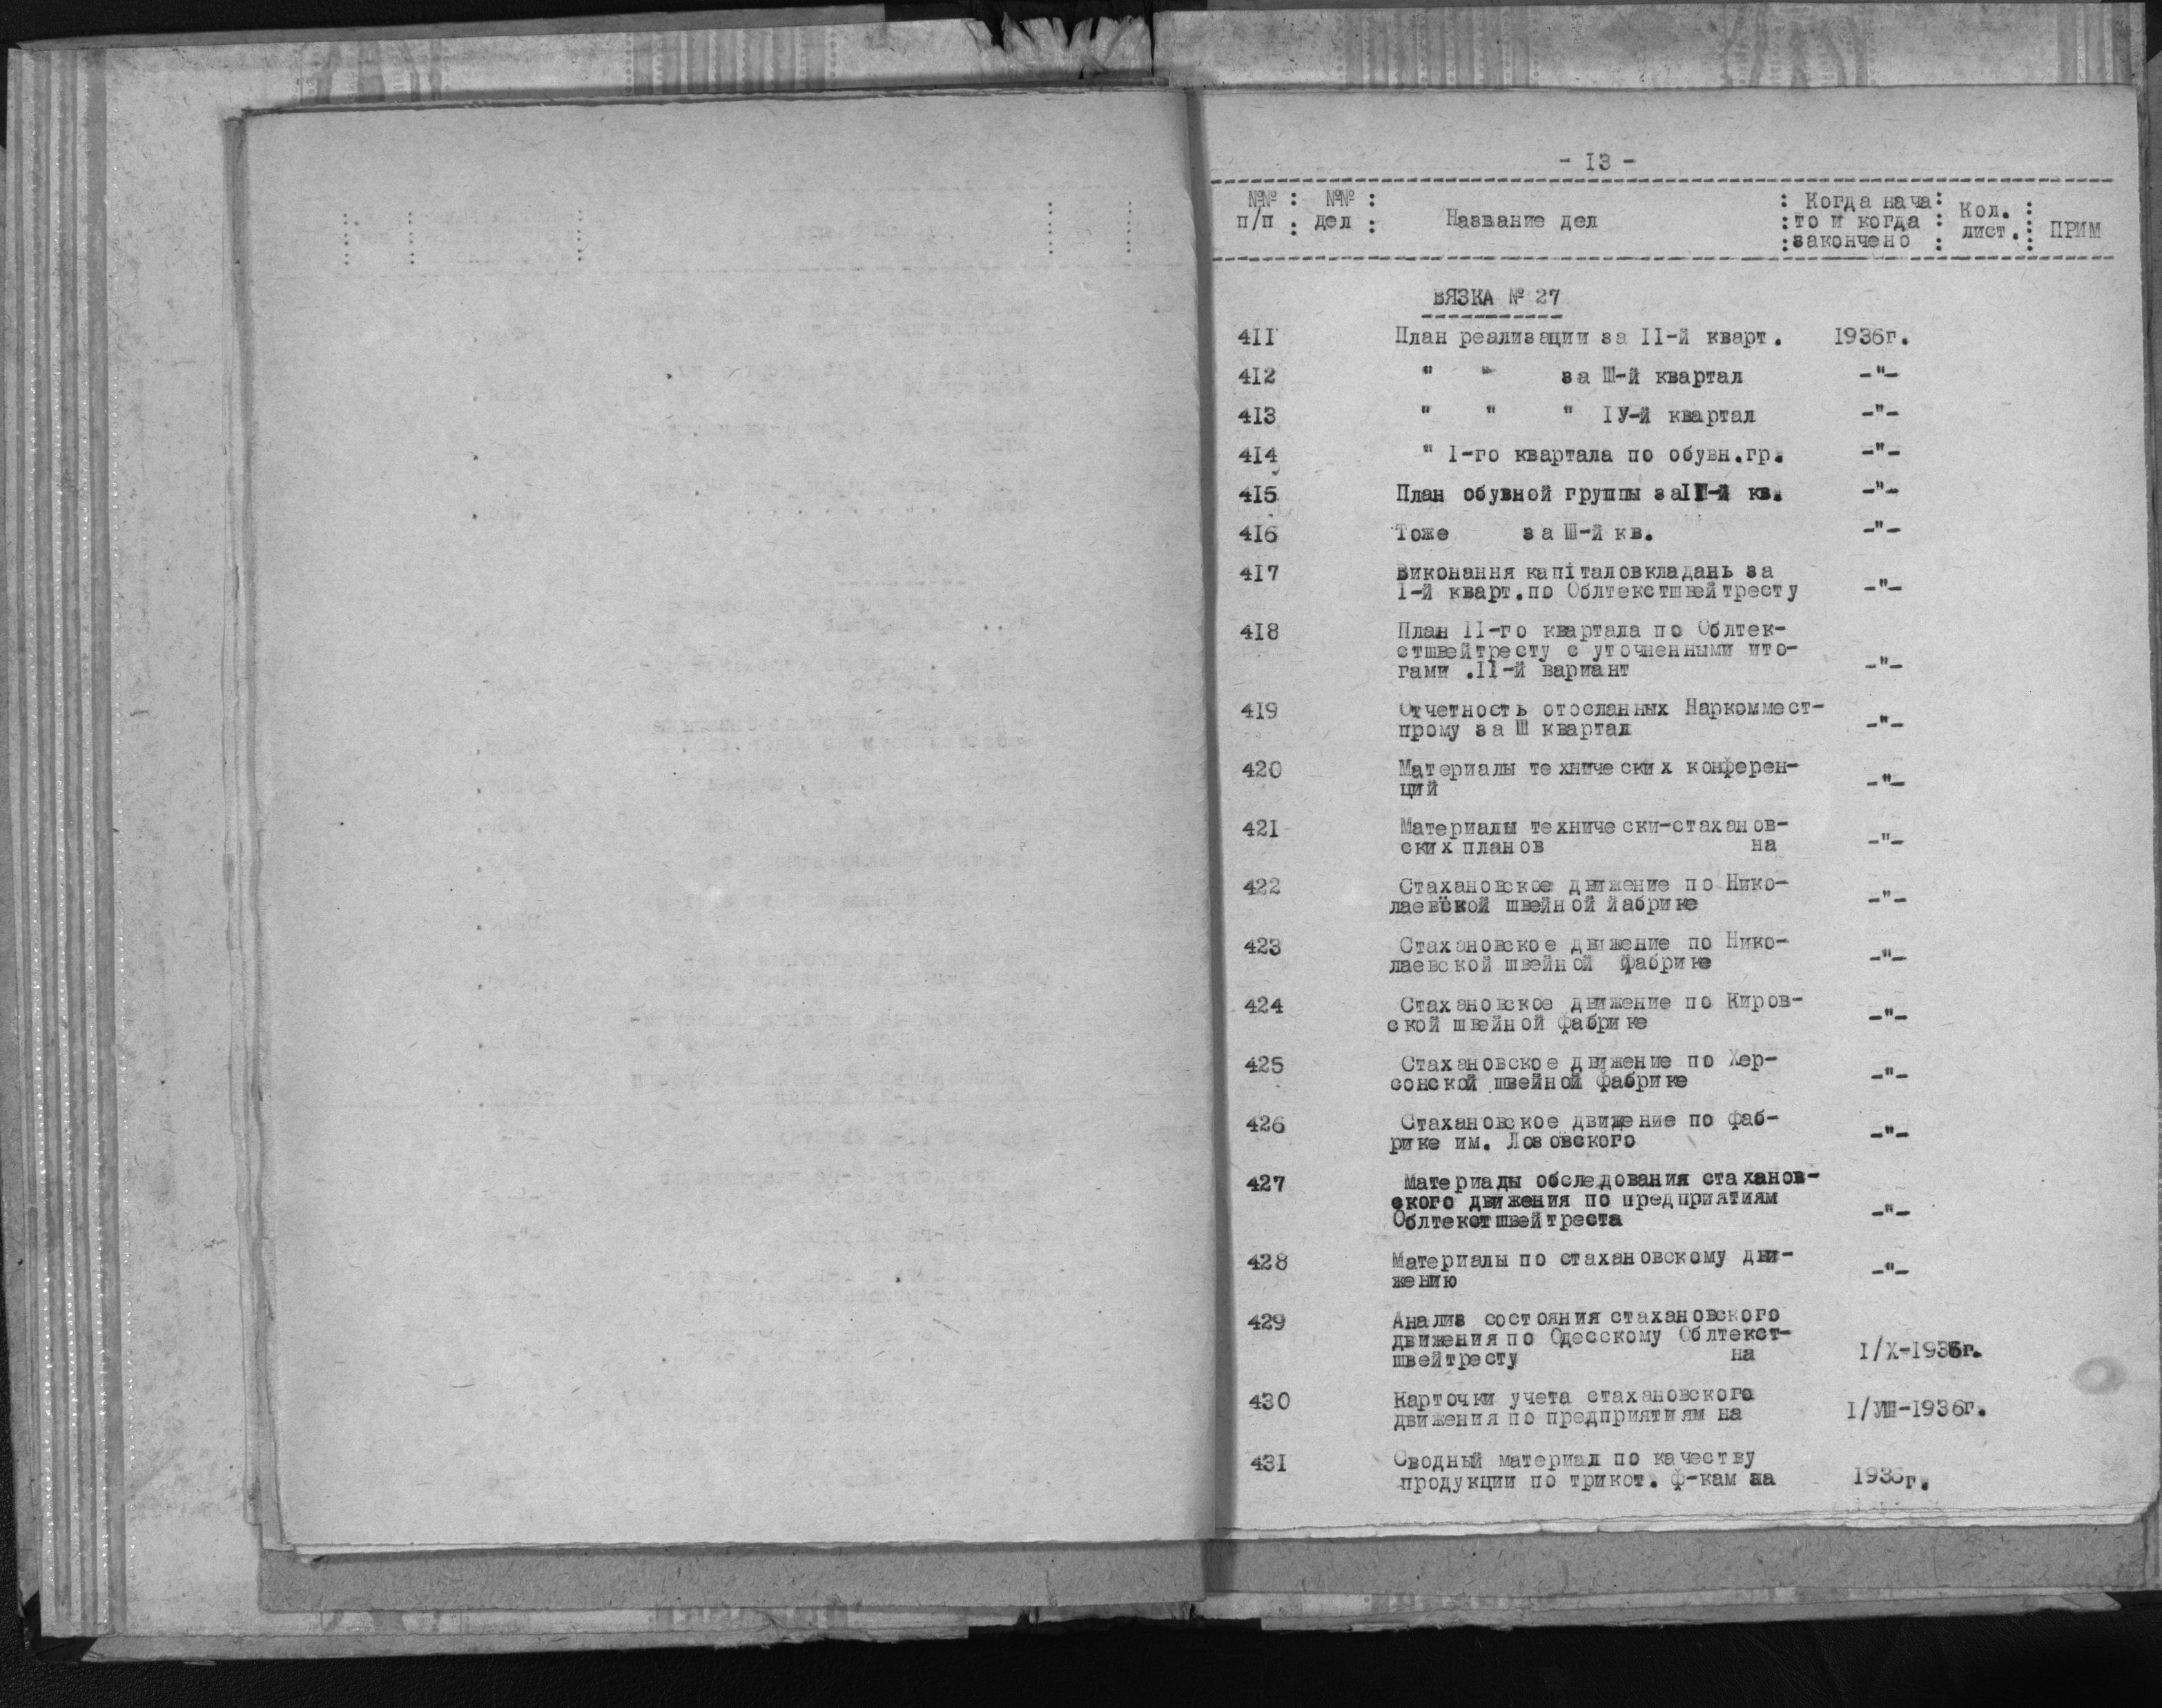 - I3 -
№№ : №№ : : Когда нача: Кол. :
п/п : дел : Название дел :то и когда : лист. : ПРИМ
:закончено :
ВЯЗКА № 27
4II План реализации за II-й кварт. I936г.
4I2 " " за Ш-й квартал -"-
4I3 " " " IУ-й квартал -"-
4I4 " I-го квартала по обувн.гр. -"-
4I5 План обувной группы за кв. -"-
4I6 Тоже за Ш-й кв. -"-
4I7 Виконання капіталовкладань за
I-й кварт.по Облтекстшвейтресту -"-
4I8 План II-го квартала по Облтек-
стшвейтресту с уточненными ито-
гами .II-й вариант -"-
4I9 Отчетность отосланных Наркоммест-
прому за Ш квартал -"-
420 Материалы технических конферен-
ций -"-
42I Материалы технически-стаханов-
ских планов на -"-
422 Стахановское движение по Нико-
лаевской швейной йабрике -"-
423 Стахановское движение по Нико-
лаевской швейной фабрике -"-
424 Стахановское движение по Киров-
ской швейной фабрике -"-
425 Стахановское движение по Хер-
сонской швейной фабрике -"-
426 Стахановское движение по фаб-
рике им. Лозовского -"-
427 Материалы обследования стаханов-
ского движения по предприятиям
Облтекстшвейтреста -"-
428 Материалы по стахановскому дви-
жению -"-
429 Анализ состояния стахановского
движения по Одесскому Облтекст-
швейтресту на I/X-1936г.
430 Карточки учета стахановского
движения по предприятиям на I/УШ-1936г.
43I Сводный материал по качеству
продукции по трикот. ф-кам за I936г.